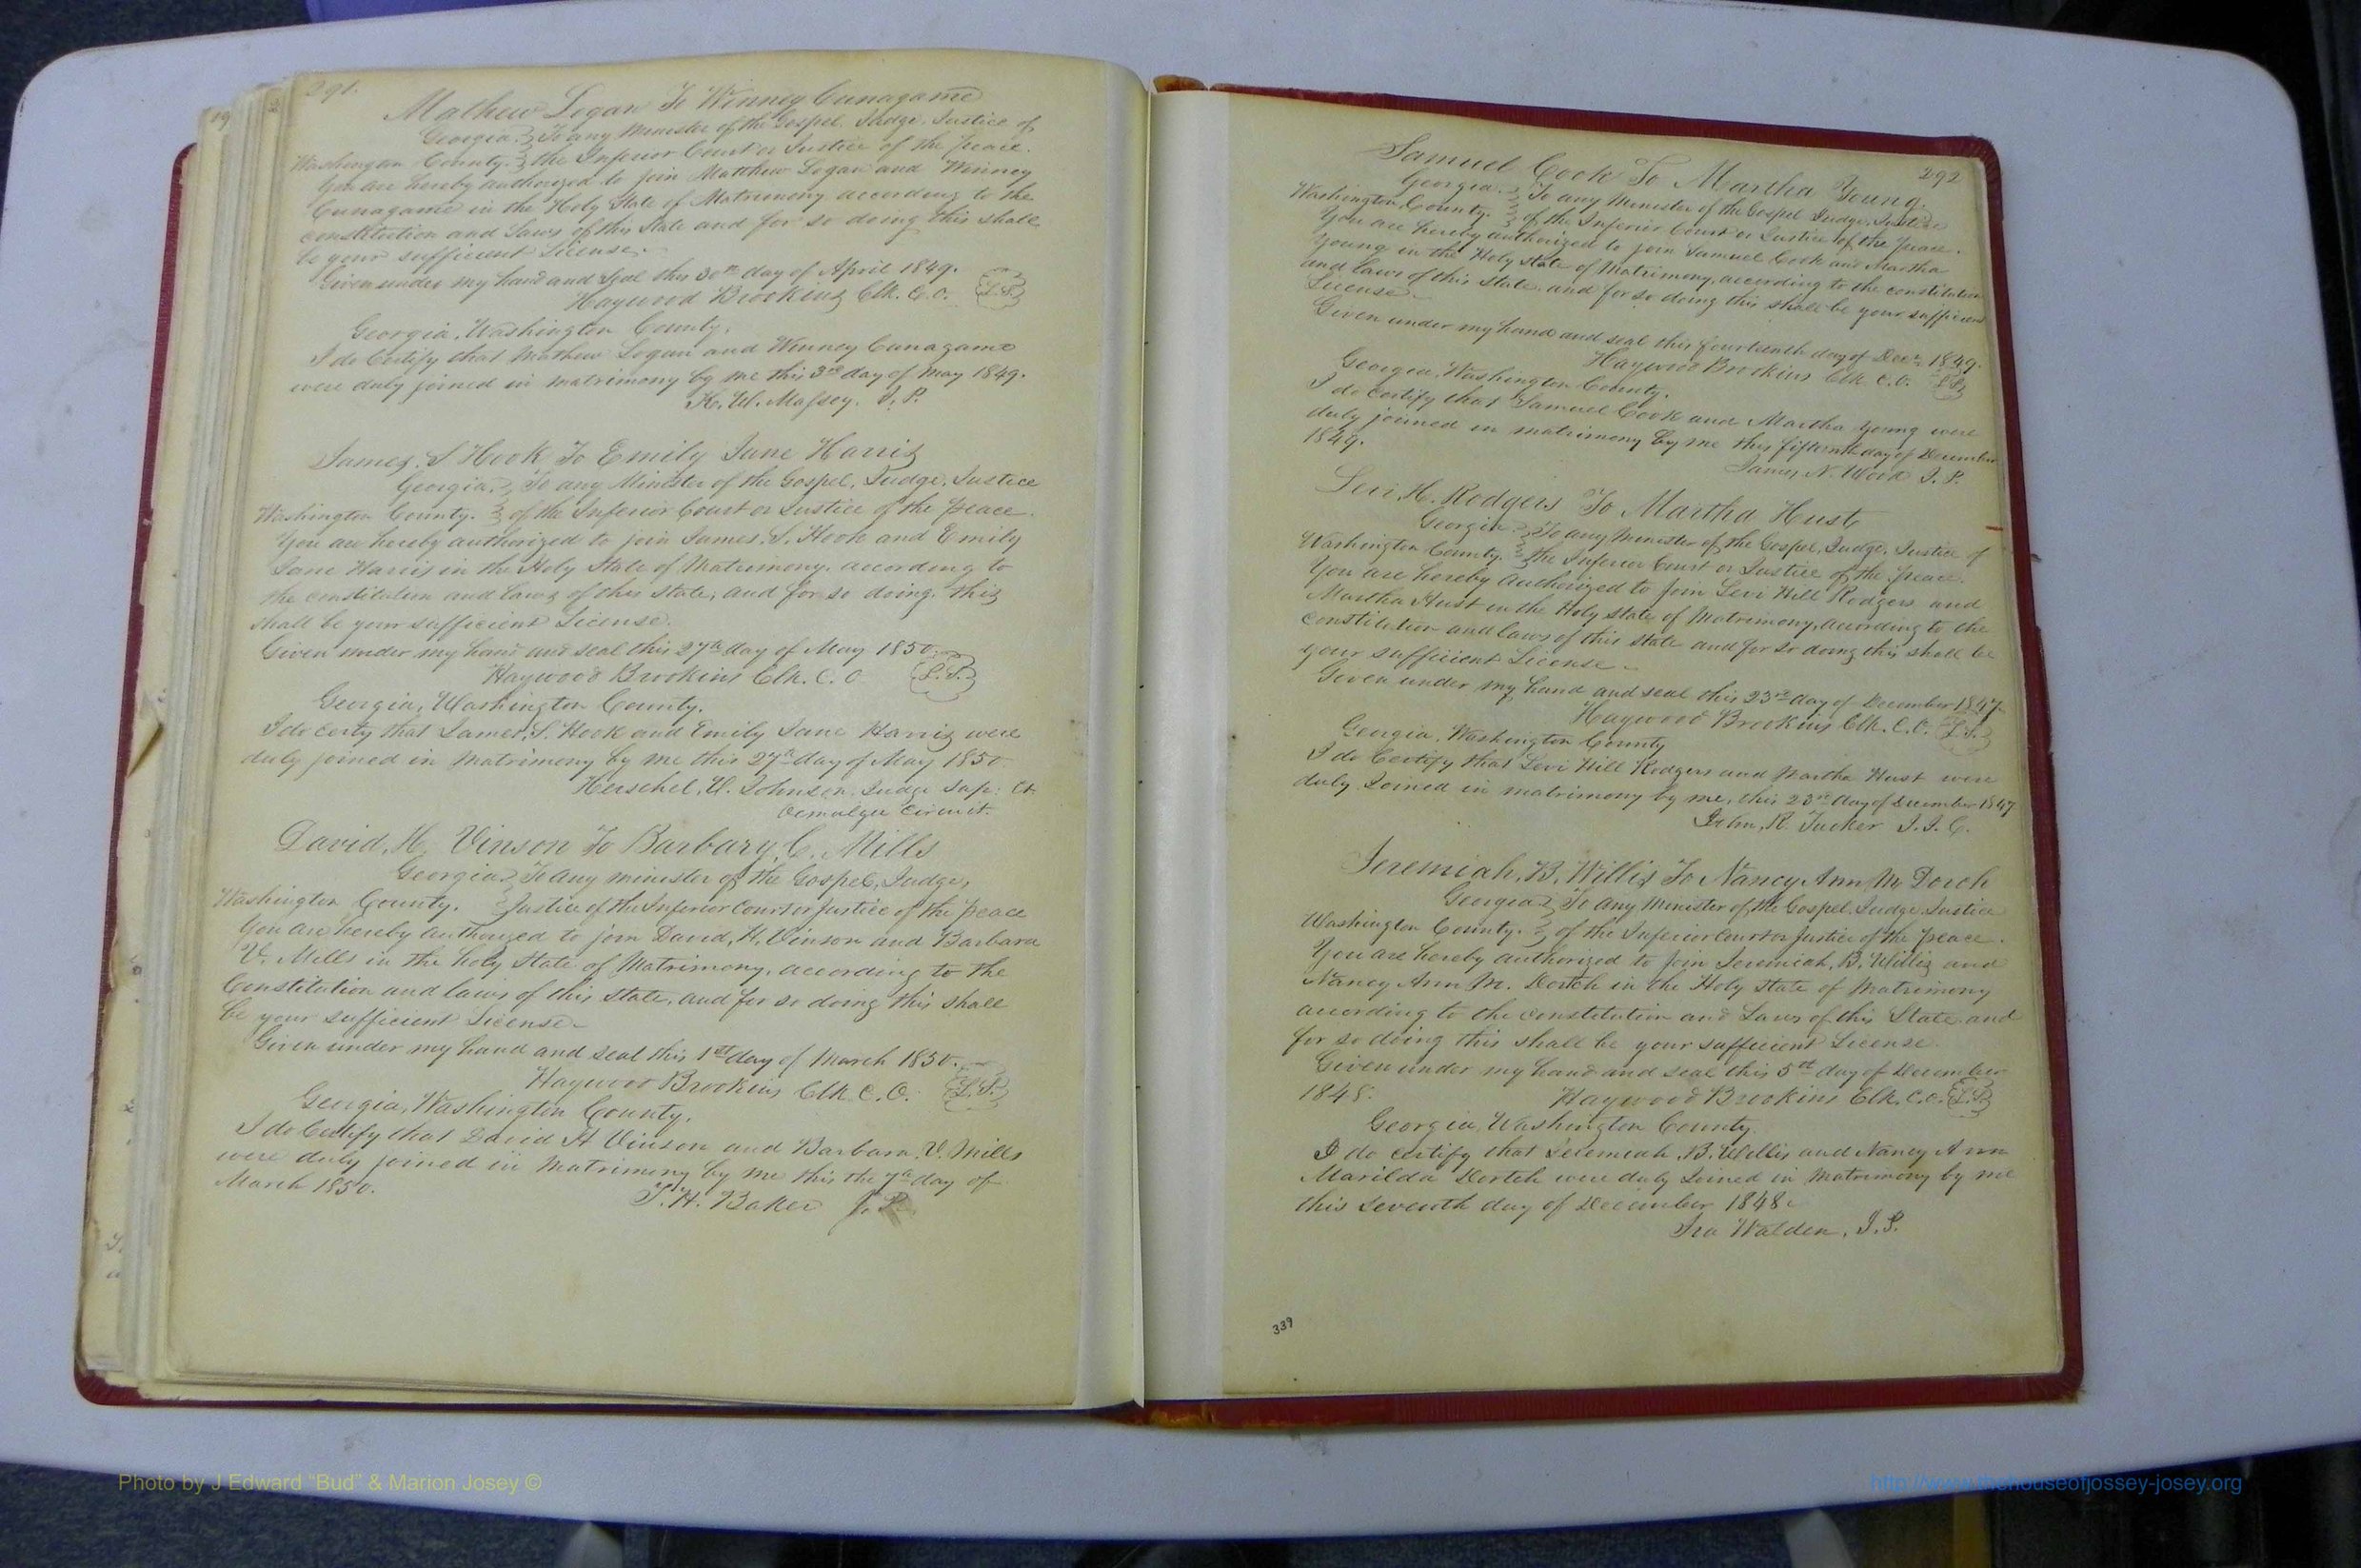 291.
Mathew Logan To Winney Cunagame
Georgia. To any Minister of the Gospel. Judge. Justice of
Washington County. the Inferior Court or Justice of the Peace.
You are hereby authorized to join Matthew Logan and Winney
Cunagame in the Holy State of Matrimony according to the
constitution and Laws of this State and for so doing this shall
be your sufficient License.
Given under my hand and Seal this 30th day of April 1849.
Haywood Brookins Clk. C.O. L.S.
Georgia, Washington County.
I do Certify that Mathew Logan and Winney Cunagame
were duly joined in matrimony by me this 3rd day of May 1849.
H. W. Massey. J. P.
James. S Hook To Emily Jane Harris
Georgia. To any Minister of the Gospel, Judge, Justice
Washington County. of the Inferior Court or Justice of the Peace.
You are hereby authorized to join James. S. Hook and Emily
Jane Harris in the Holy State of Matrimony. according to
the constitution and laws of this state, and for so doing. this
shall be your sufficient License.
Given under my hand and seal this 27th day of May 1850.
Haywood Brookins Clk. C. O L.S.
Georgia, Washington County.
I do certy that James. S. Hook and Emily Jane Harris were
duly joined in Matrimony by me this 27th day of May 1850.
Herschel. V. Johnson. Judge Sup: Ct.
Ocmulgee Circuit.
David. H. Vinson To Barbary. C. Mills
Georgia To any minister of the Gospel, Judge,
Washington County. Justice of the Inferior Court or Justice of the Peace
You are hereby authorized to join David, H. Vinson and Barbara
V. Mills in the holy State of Matrimony, according to the
Constitution and laws of this State, and for so doing this shall
be your sufficient License
Given under my hand and seal this 1st day of March 1850.
Haywood Brookins Clk C. O. L.S.
Georgia, Washington County.
I do Certify that David H Vinson and Barbara. V. Mills
were duly joined in Matrimony by me this the 7th day of
March 1850.
T. H. Baker J. P.
292
Samuel Cook To Martha Young.
Georgia. To any Minister of the Gospel Judge, Justice
Washington County. of the Inferior Court or Justice of the Peace.
You are hereby authorized to join Samuel Cook and Martha
Young in the Holy State of Matrimony, according to the constitution
and laws of this State. and for so doing this shall be your sufficient
License.
Given under my hand and seal this fourteenth day of Decr 1849.
Haywood Brookins Clk. C.O. L.S.
Georgia, Washington County.
I do certify that Samuel Cook and Martha Young were
duly joined in matrimony by me this fifteenth day of December
1849.
James N. Wood J. P.
Levi. H. Rodgers To Martha Hust
Georgia. To any Minister of the Gospel, Judge, Justice of
Washington County. the Inferior Court or Justice of the Peace.
You are hereby authorized to join Levi Hill Rodgers and
Martha Hust in the Holy State of Matrimony, according to the
constitution and laws of this state and for so doing this shall be
your sufficient License
Given under my hand and seal this 23rd day of December 1847.
Haywood Brookins Clk. C.O. L.S.
Georgia, Washington County
I do Certify that Levi Hill Rodgers and Martha Hust were
duly Joined in matrimony by me, this 23rd day of December 1847
John, R. Tucker J. I. C.
Jeremiah, B. Willis To Nancy Ann M Dorch
Georgia To any Minister of the Gospel. Judge. Justice
Washington County. of the Inferior Court or Justice of the Peace.
You are hereby authorized to join Jeremiah, B. Willis and
Nancy Ann M. Dortch in the Holy State of Matrimony
according to the constitution and Laws of this State. and
for so doing this shall be your sufficient License.
Given under my hand and seal this 5th day of December
1848. Haywood Brookins Clk. C.O. L.S.
Georgia, Washington County.
I do certify that Jeremiah. B. Willis and Nancy Ann
Marilda Dortch were duly Joined in Matrimony by me
this Seventh day of December 1848.
Ira Walden, J. P.
339
Photo by J Edward “Bud” & Marion Josey ©
http://www.thehouseofjossey-josey.org